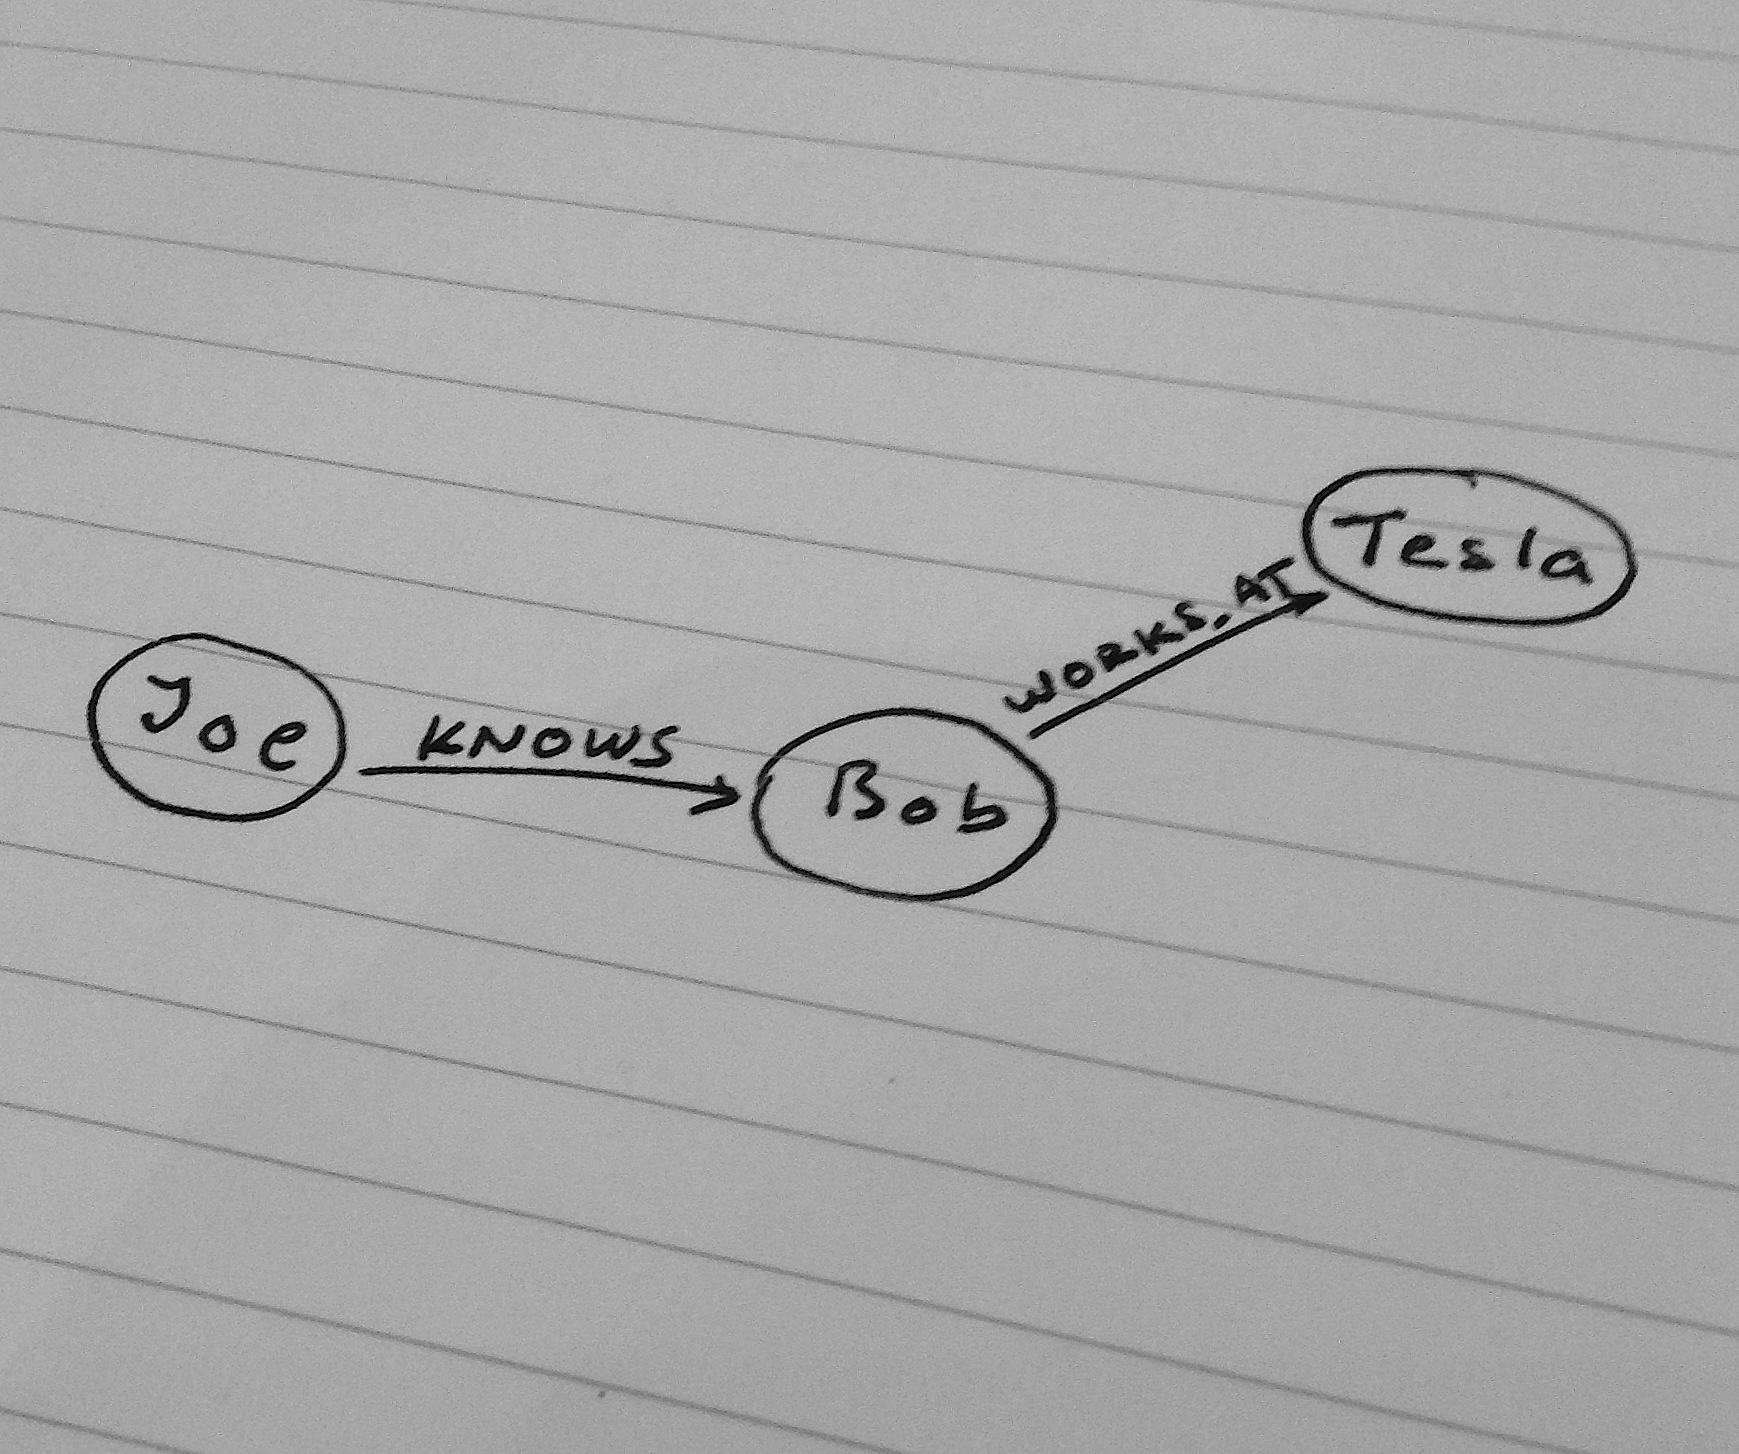 Joe
KNOWS
Bob
WORKS_AT
Tesla